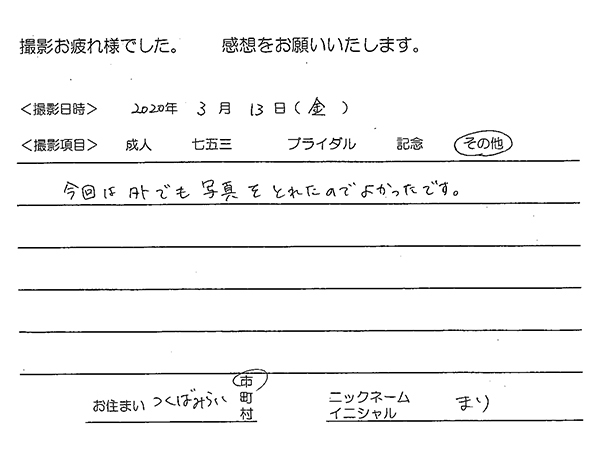 撮影お疲れ様でした。 感想をお願いいたします。
＜撮影日時＞ 2020年 3月 13日（金）
＜撮影項目＞ 成人 七五三 ブライダル 記念 その他
今回は外でも写真をとれたのでよかったです。
お住まい つくばみらい 市町村
ニックネーム イニシャル まり